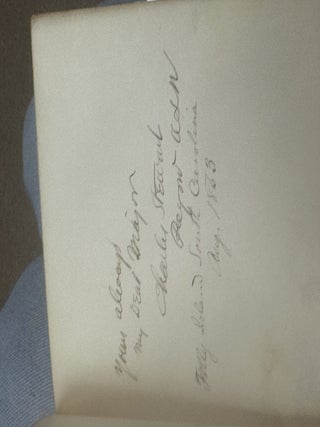 Yours always
my Dear Major
Charles Stewart
Folly Island South Carolina
Aug. 1863